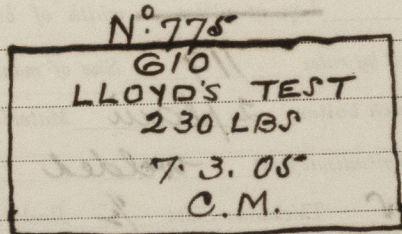 No. 775
610
LLOYD'S TEST
230 LBS
7. 3. 05
C. M.